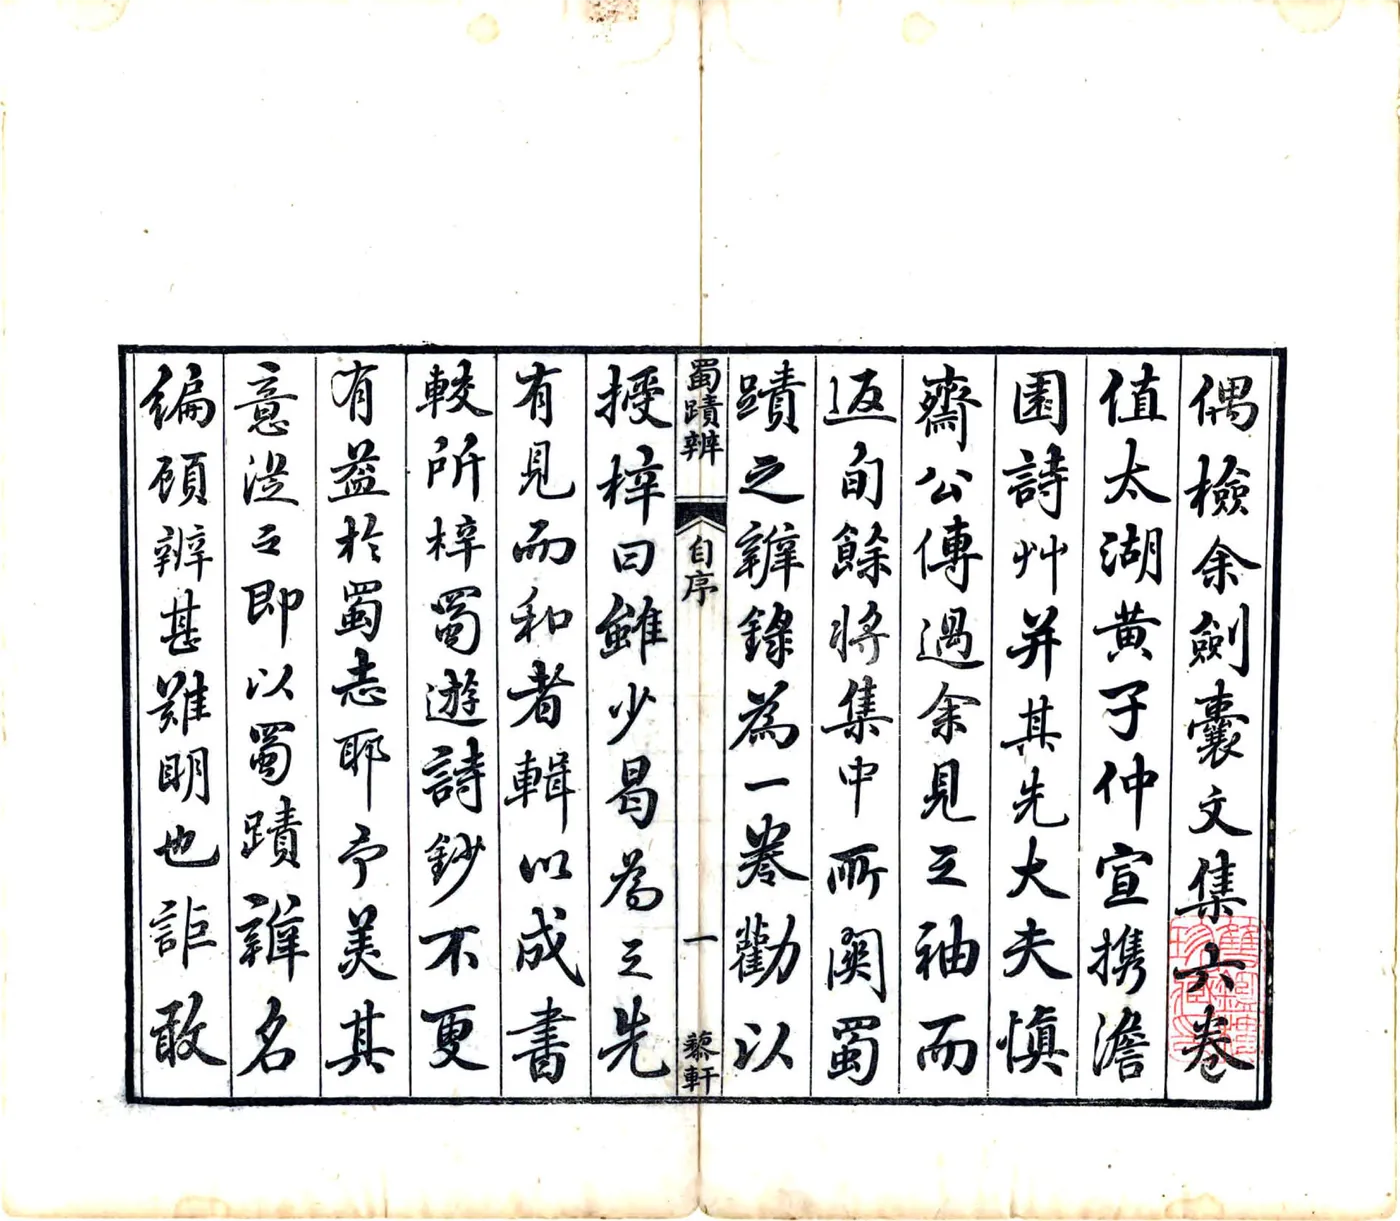 偶檢余劍囊文集六卷
值太湖黃子仲宣携澹
園詩艸并其先大夫慎
齋公傳過余見之袖而
返旬餘將集中所閱蜀
蹟之辨錄為一卷勸以
蜀蹟辨
自序
一
藜軒
授梓曰雖少曷為之先
有見而和者輯以成書
較所梓蜀遊詩鈔不更
有益於蜀志耶予美其
意從之即以蜀蹟辨名
編顧辨甚難明也詎敢